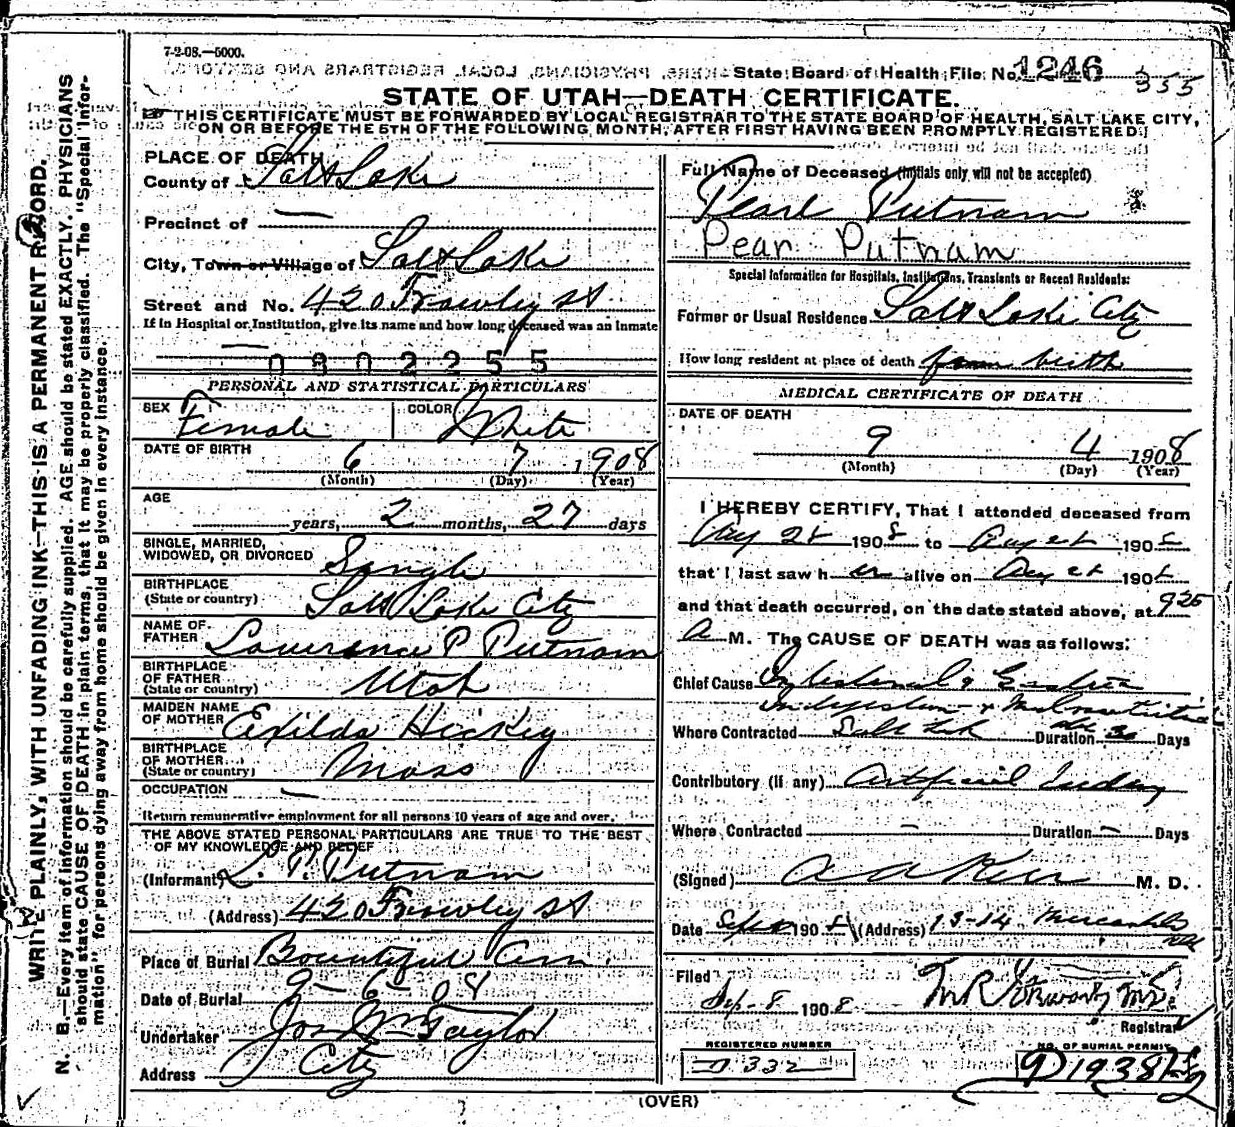 7-2-08.—5000.
State Board of Health File No. 1246 355
STATE OF UTAH—DEATH CERTIFICATE.
THIS CERTIFICATE MUST BE FORWARDED BY LOCAL REGISTRAR TO THE STATE BOARD OF HEALTH, SALT LAKE CITY,
ON OR BEFORE THE 5TH OF THE FOLLOWING MONTH, AFTER FIRST HAVING BEEN PROMPTLY REGISTERED.
WRITE PLAINLY, WITH UNFADING INK—THIS IS A PERMANENT RECORD.
N. B.—Every item of information should be carefully supplied. AGE should be stated EXACTLY. PHYSICIANS
should state CAUSE OF DEATH in plain terms, that it may be properly classified. The "Special Infor-
mation" for persons dying away from home should be given in every instance.
PLACE OF DEATH
County of Salt Lake
Precinct of —
City, Town or Village of Salt Lake
Street and No. 420 Frawley St
If in Hospital or Institution, give its name and how long deceased was an inmate
— 0802255
PERSONAL AND STATISTICAL PARTICULARS
SEX Female COLOR White
DATE OF BIRTH 6 7 1908
(Month) (Day) (Year)
AGE years, 2 months, 27 days
SINGLE, MARRIED,
WIDOWED, OR DIVORCED Single
BIRTHPLACE
(State or country) Salt Lake City
NAME OF
FATHER Lawrence P Putnam
BIRTHPLACE
OF FATHER
(State or country) Utah
MAIDEN NAME
OF MOTHER Exilda Hickey
BIRTHPLACE
OF MOTHER
(State or country) Mass
OCCUPATION —
Return remunerative employment for all persons 10 years of age and over.
THE ABOVE STATED PERSONAL PARTICULARS ARE TRUE TO THE BEST
OF MY KNOWLEDGE AND BELIEF
(Informant) L. P. Putnam
(Address) 420 Frawley St
Place of Burial Bountiful Cem.
Date of Burial 9-6-08
Undertaker Jos Wm Taylor
Address City
Full Name of Deceased (Initials only will not be accepted)
Pearl Putnam
Pearl Putnam
Special Information for Hospitals, Institutions, Transients or Recent Residents:
Former or Usual Residence Salt Lake City
How long resident at place of death from birth
MEDICAL CERTIFICATE OF DEATH
DATE OF DEATH
9 4 1908
(Month) (Day) (Year)
I HEREBY CERTIFY, That I attended deceased from
Aug 1908 to Aug 190
that I last saw her alive on Aug 190
and that death occurred, on the date stated above, at 925
A M. The CAUSE OF DEATH was as follows:
Chief Cause Intestinal & Gastric
Indigestion & Malnutrition
Where Contracted Salt Lake Duration 30 Days
Contributory (if any) Artificial feeding
Where Contracted — Duration — Days
(Signed) A A Kerr M. D.
Date Sept 190 (Address) 13-14 Mercantile
Filed Sep-8 1908
Registrar
REGISTERED NUMBER
332
NO. OF BURIAL PERMIT
91938
(OVER)